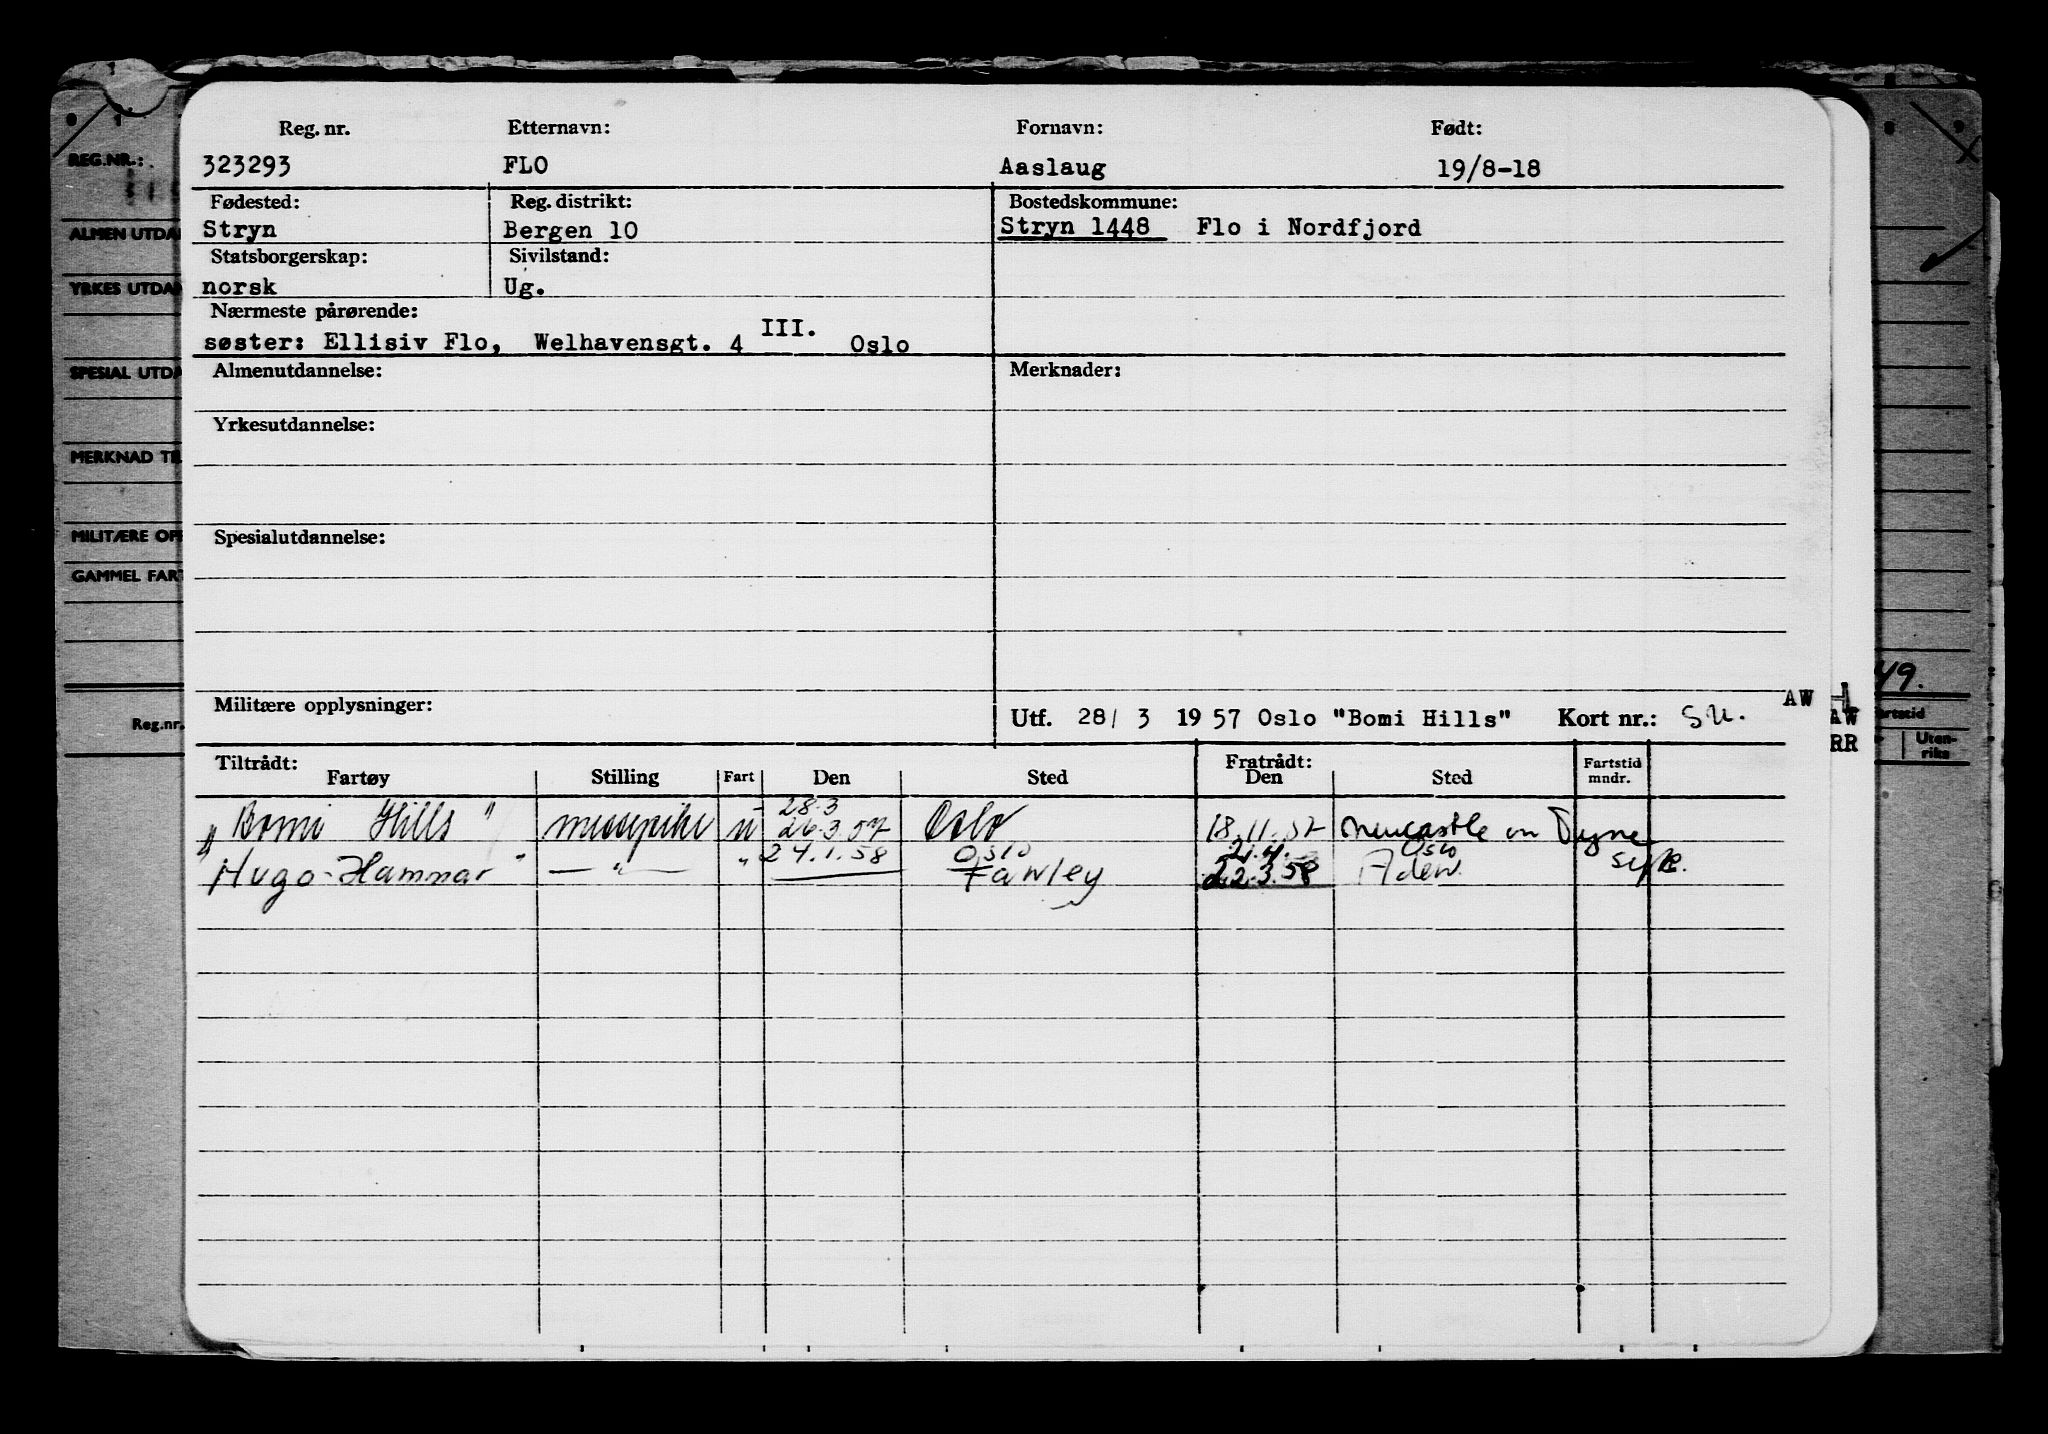 Reg. nr. Etternavn: Fornavn: Født:
323293 FLO Aaslaug 19/8-18
Fødested: Reg. distrikt: Bostedskommune:
Stryn Bergen 10 Stryn 1448 Flo i Nordfjord
Statsborgerskap: Sivilstand:
norsk Ug.
Nærmeste pårørende:
søster: Ellisiv Flo, Welhavensgt. 4 III. Oslo
Almenutdannelse: Merknader:
Yrkesutdannelse:
Spesialutdannelse:
Militære opplysninger: Utf. 28/ 3 1957 Oslo "Bomi Hills" Kort nr.: S.U.
AW
AW
RR
Tiltrådt: Fratrådt:
Fartøy Stilling Fart Den Sted Den Sted Fartstid mndr.
28.3
"Bomi Hills" messepike u 26.3.57 Oslo 18.11.57 Newcastle on Tyne
24.1.58 Oslo 21.4. Oslo
"Hugo-Hammar" — " — " Fawley 22.3.58 Aden syk.
REG.NR.:
ALMEN UTDA
YRKES UTDA
SPESIAL UTDA
MERKNAD TIL
MILITÆRE OPP
GAMMEL FART
Reg.nr.
49.
artstid
Uten-
riks